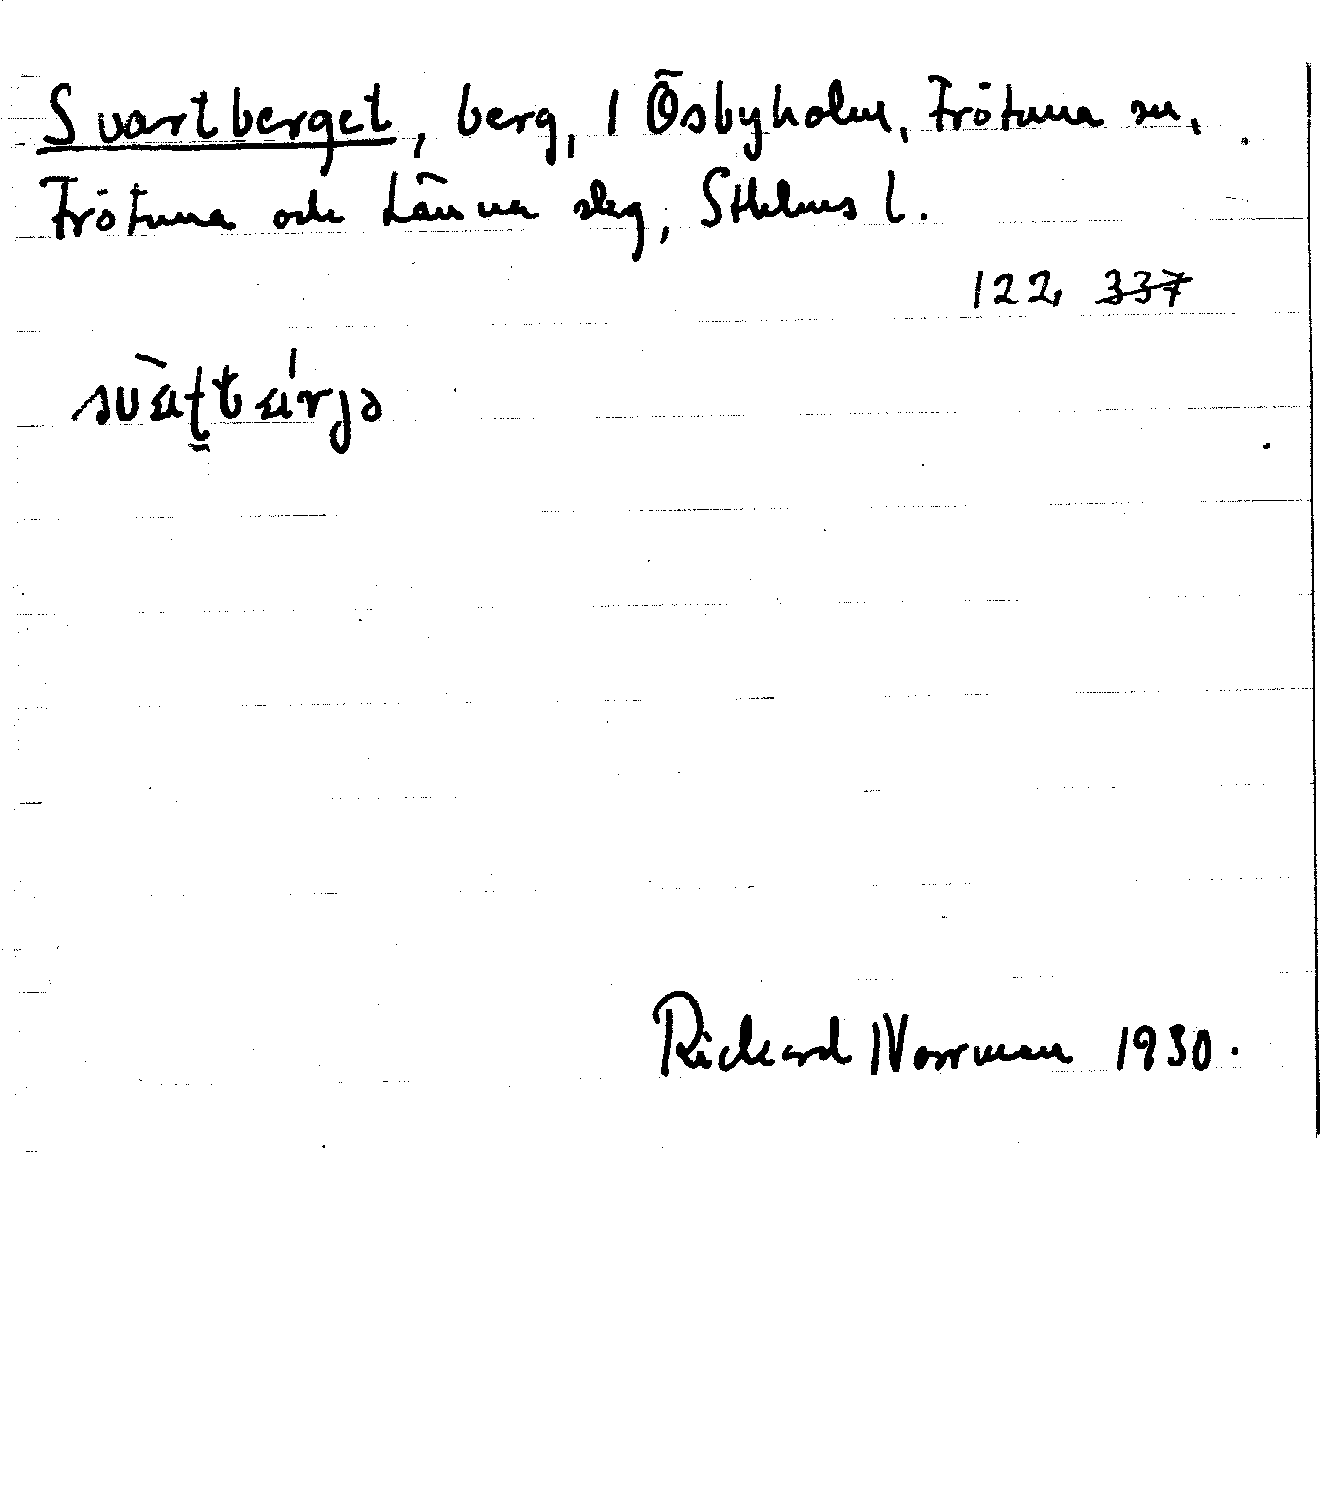 Svartberget, berg, 1 Ösbyholm, Frötuna sn,
Frötuna och Länna slag, Sthlms l.
122, 337
Rickard Norrman 1930.